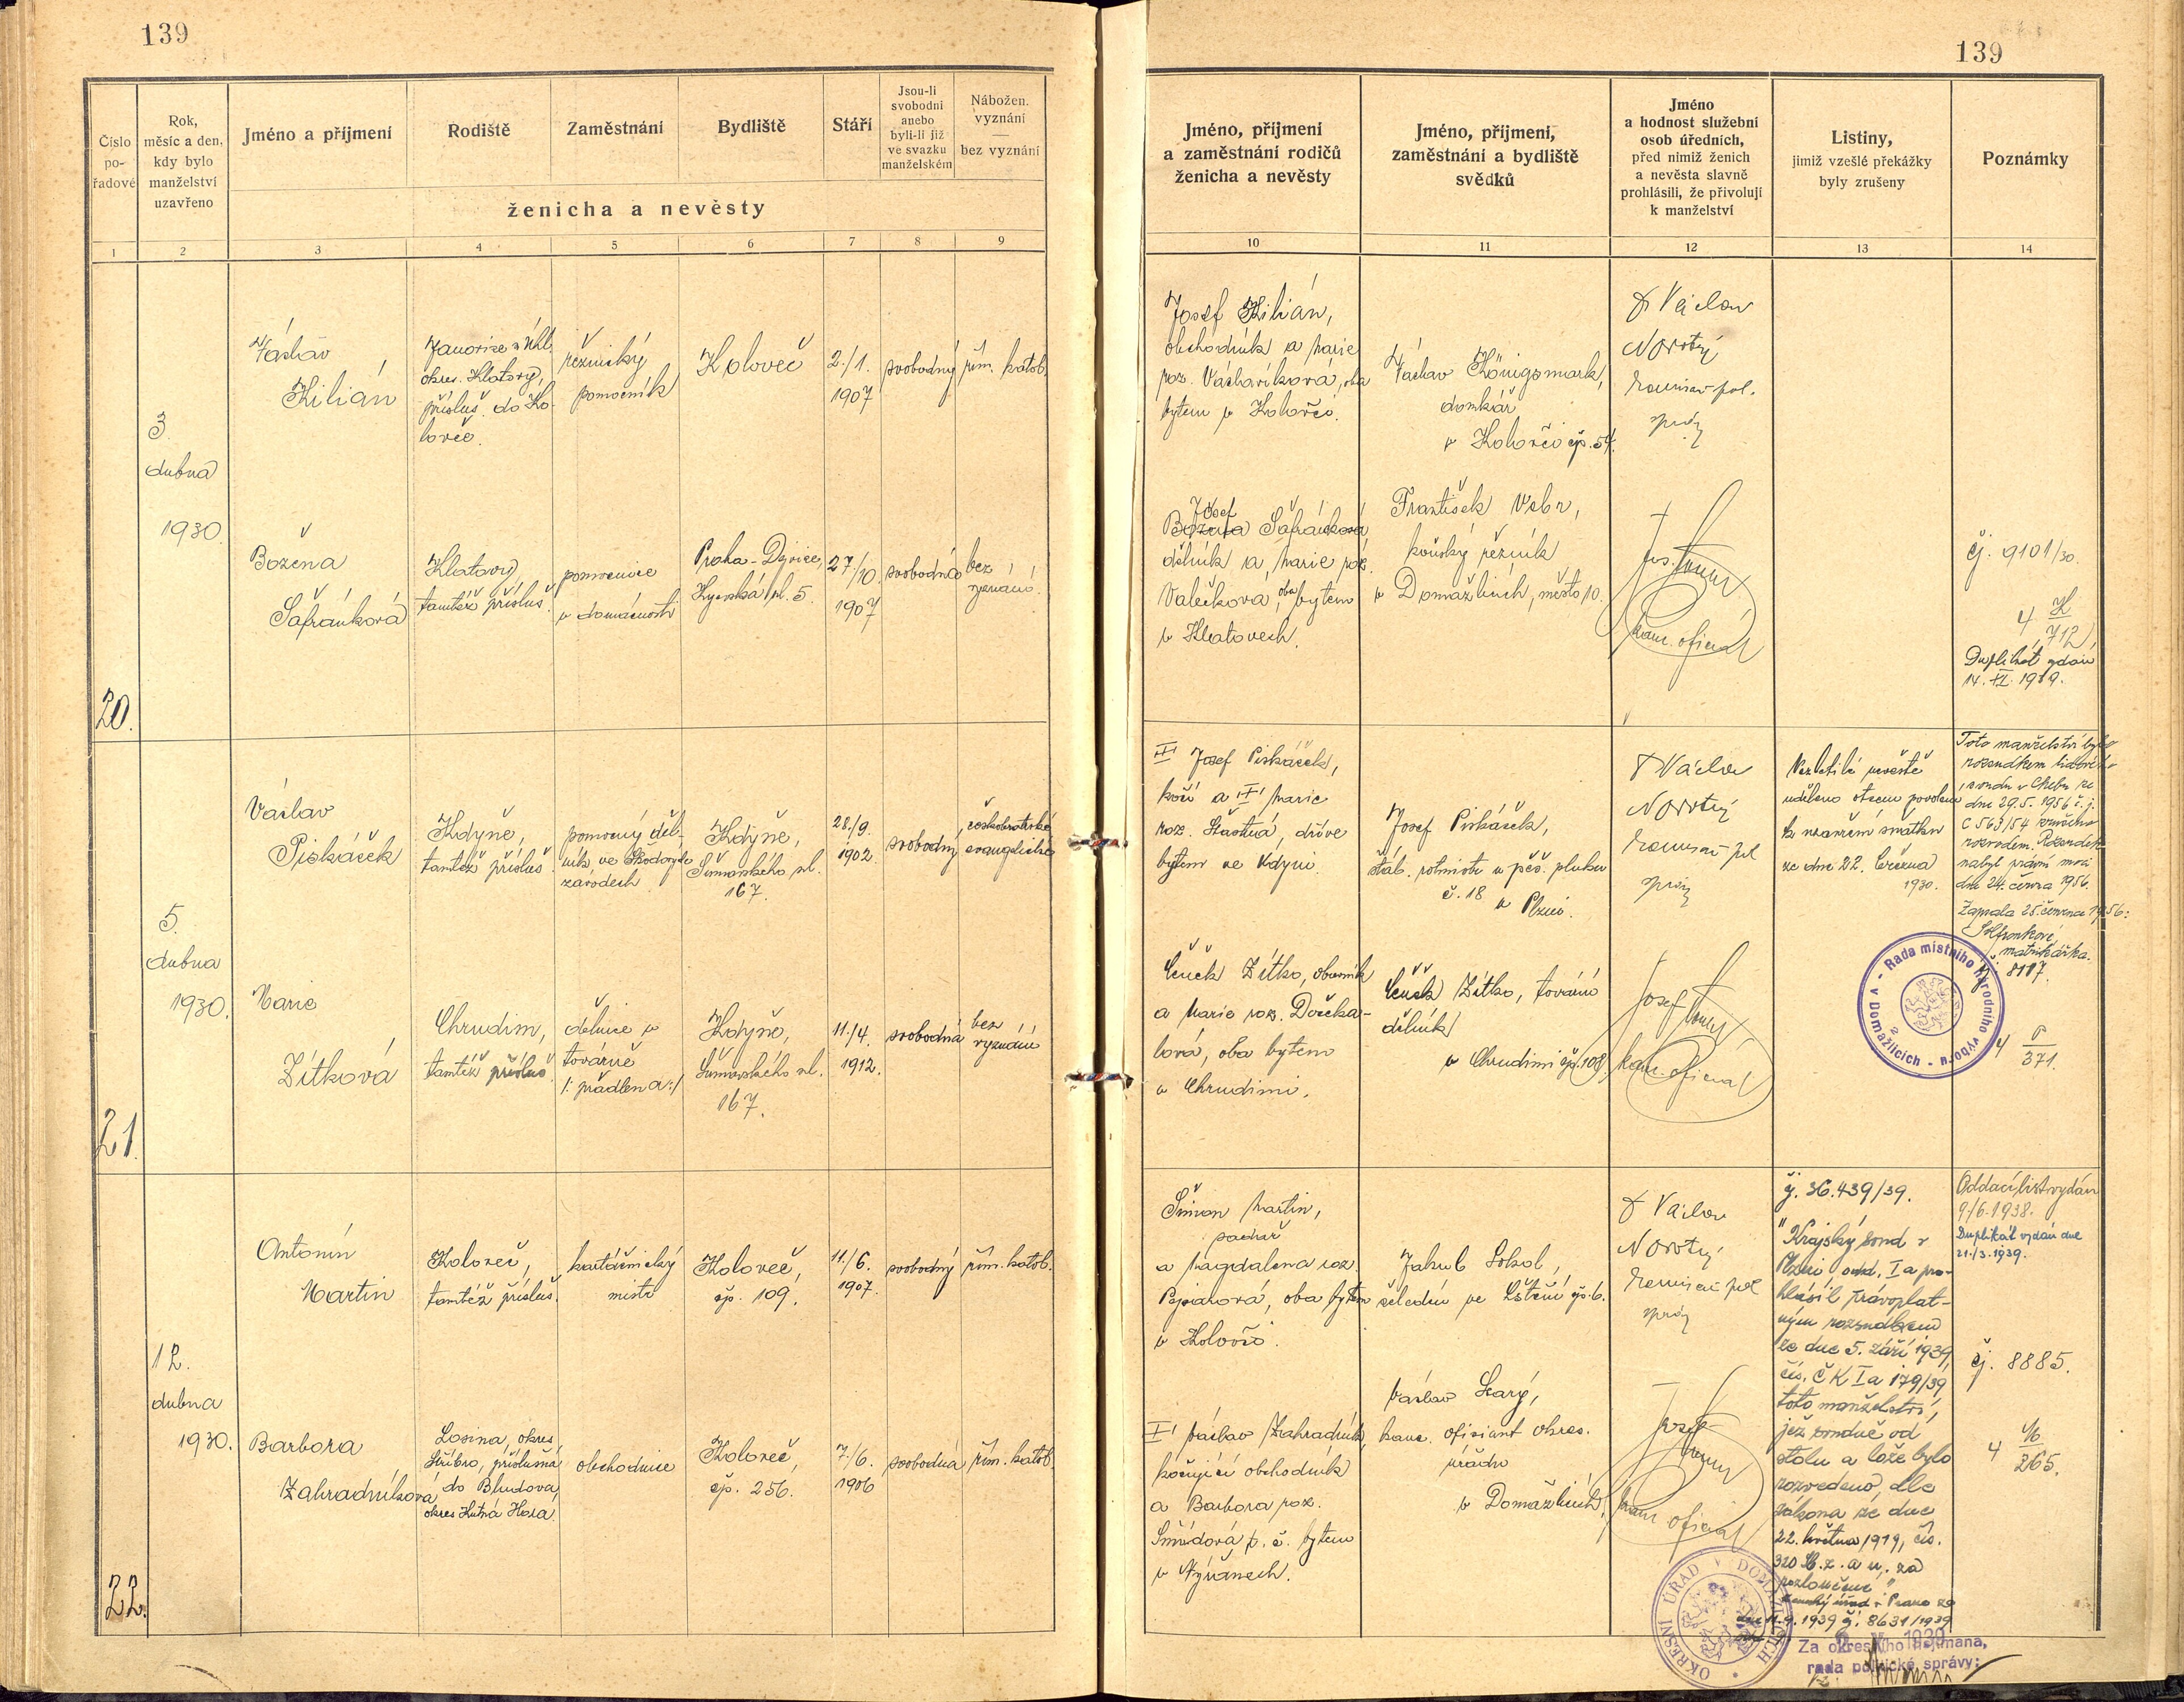 139
139
Číslo
po-
řadové
Rok,
měsíc a den,
kdy bylo
manželství
uzavřeno
Jméno a příjmení
Rodiště
Zaměstnání
Bydliště
Stáří
Jsou-li
svobodni
anebo
byli-li již
ve svazku
manželském
Nábožen.
vyznání
—
bez vyznání
ženicha a nevěsty
Jméno, příjmení
a zaměstnání rodičů
ženicha a nevěsty
Jméno, příjmení,
zaměstnání a bydliště
svědků
Jméno
a hodnost služební
osob úředních,
před nimiž ženich
a nevěsta slavně
prohlásili, že přivolují
k manželství
Listiny,
jimiž vzešlé překážky
byly zrušeny
Poznámky
1
2
3
4
5
6
7
8
9
10
11
12
13
14
20.
3.
dubna
1930.
Václav
Kilián
okres. Klatovy,
přísluš. do Ko-
lovče.
řeznický
pomocník
Koloveč
2./1.
1907
svobodný
řím. katol.
Josef Kilián,
obchodník a Marie
roz. Vachaříková, oba
bytem v Kolovči.
Václav Königsmark,
domkář
v Kolovči čp. 54.
Václav
Novotný
komisař pol.
správy
Božena
Šafránková
Klatovy,
tamtéž přísluš.
pomocnice
v domácnosti
Praha-Dejvice,
Kyjevská ul. 5.
27/10.
1907
svobodná
bez
vyznání.
Josef
Božena Šafránková
dělník a Marie roz.
Valečková, oba bytem
v Klatovech.
František Vebr,
koňský řezník
v Domažlicích, město 10.
Jos.
kanc. oficiál
čj. 9101/30.
4 K
712,
Duplikát vydán
14. XI. 1939.
21.
5.
dubna
1930.
Václav
Piskáček
Kdyně,
tamtéž přísluš.
pomocný děl-
ník ve Škodových
závodech
Kdyně,
Šumavského ul.
167.
28./9.
1902.
svobodný
českobratrské
evangelické
III Josef Piskáček,
kočí a III Marie
roz. Šťastná, dříve
bytem ve Kdyni.
Josef Piskáček,
štáb. rotmistr u pěš. pluku
č. 18 v Plzni.
Václav
Novotný
komisař pol
správy
Nezletilé nevěstě
uděleno otcem povolení
k uzavření sňatku
ze dne 22. března
1930.
Toto manželství bylo
rozsudkem lidového
soudu v Chebu ze
dne 29.5. 1956 č. j.
C 563/54 zrušeno
rozvodem. Rozsudek
nabyl právní moci
dne 24. června 1956.
Zapsala 25. června 1956:
matrikářka.
8117.
Marie
Zítková
Chrudim,
tamtéž přísluš.
dělnice v
továrně
/: přádlena :/
Kdyně,
Šumavského ul.
167.
11./4.
1912.
svobodná
bez
vyznání
Čeněk Zítko, obuvník
a Marie roz. Dočka-
lová, oba bytem
v Chrudimi.
Čeněk Zítko, tovární
dělník
v Chrudimi čp. 108.
Josef
kanc. oficiál
Rada místního národního výboru v Domažlicích
2
4 P
371.
22.
12.
dubna
1930.
Antonín
Martin
Koloveč,
tamtéž přísluš.
kartáčnický
mistr
Koloveč,
čp. 109.
11./6.
1907.
svobodný
řím. katol.
Šimon Martin,
pachař
a Magdalena roz.
oba bytem
v Kolovči.
Jakub Sokol,
čeledín ve Lštění čp. 6.
Václav
Novotný
komisař pol
správy
čj. 36.439/39.
"Krajský soud v
Plzni odd. I a pro-
hlásil právoplat-
ným rozsudkem
ze dne 5. září 1939,
čís. Č K I a 179/39
toto manželství,
jež soudně od
stolu a lože bylo
rozvedeno, dle
zákona ze dne
22. května 1919, čís.
320 Sb. z. a n., za
rozloučené"
Zemský úřad v Praze ze
dne 11.9.1939 čj. 8631/1939
Oddací list vydán
9/6.1938.
Duplikát vydán dne
21./3.1939.
čj. 8885.
4 M
265.
Barbora
Zahradníková
Losina, okres
Stříbro, příslušná
do Bludova,
okres Kutná Hora.
obchodnice
Koloveč,
čp. 256.
7./6.
1906
svobodná
řím. katol.
I Václav Zahradník,
kočující obchodník
a Barbora roz.
Šmídová, t. č. bytem
v Nýřanech.
Václav Starý,
kanc. oficiant okres.
úřadu
v Domažlicích.
Josef
kanc. oficiál
OKRESNÍ ÚŘAD V DOMAŽLICÍCH
1939
Za okresního hejtmana,
rada politické správy: